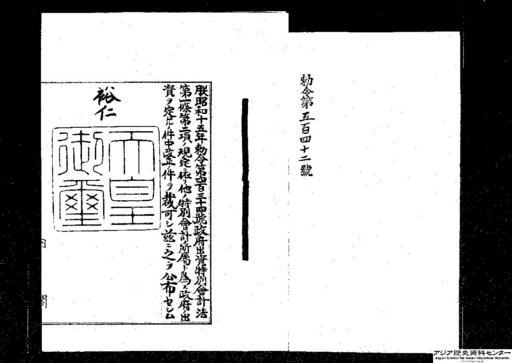 勅令第五百四十二號
朕昭和十五年勅令第四百三十四號政府出資特別會計法
第一條第二項ノ規定ニ依ル他ノ特別會計ノ所屬ト爲ス政府出
資ヲ定ムルノ件中改正ノ件ヲ裁可シ茲ニ之ヲ公布セシム
裕仁
天皇
御璽
内閣
アジア歴史資料センター
Japan Center for Asian Historical Records